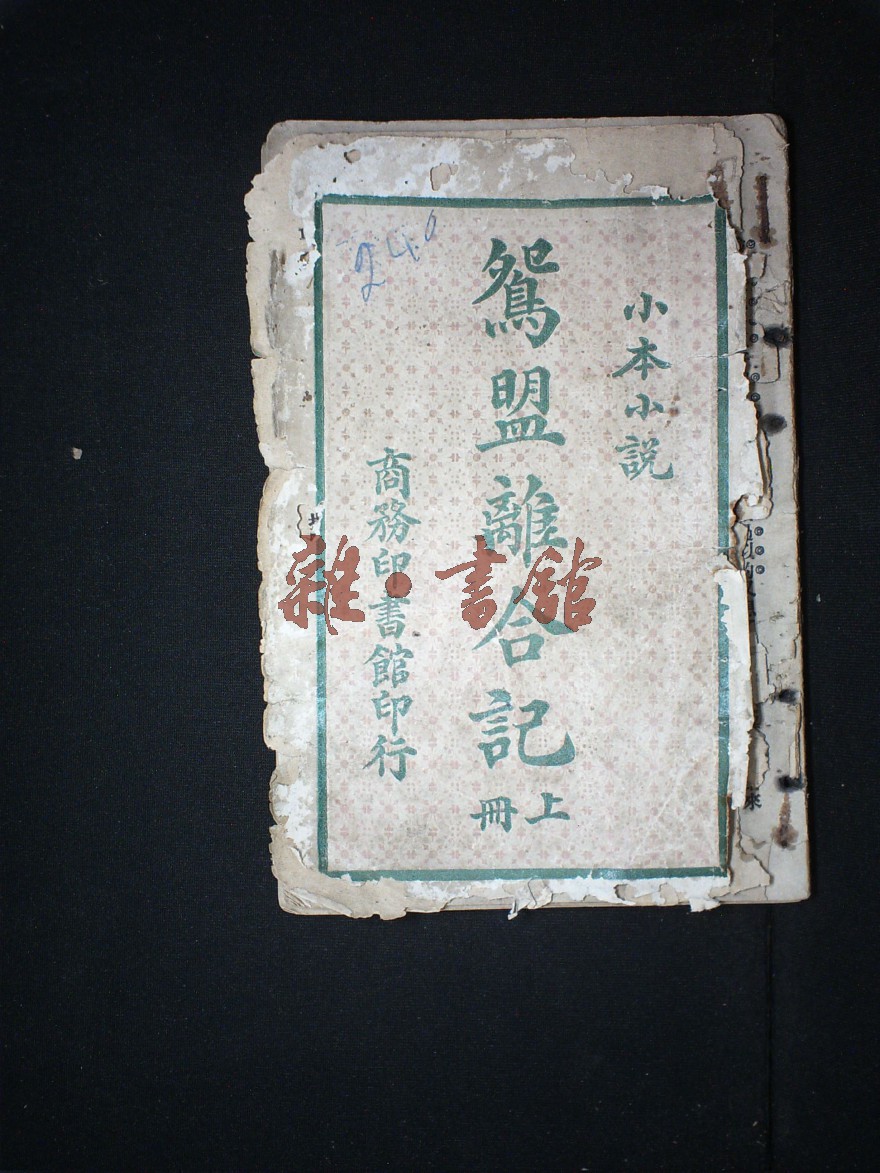 小本小説
鴛盟離合記
上冊
商務印書館印行
240
雜·書館